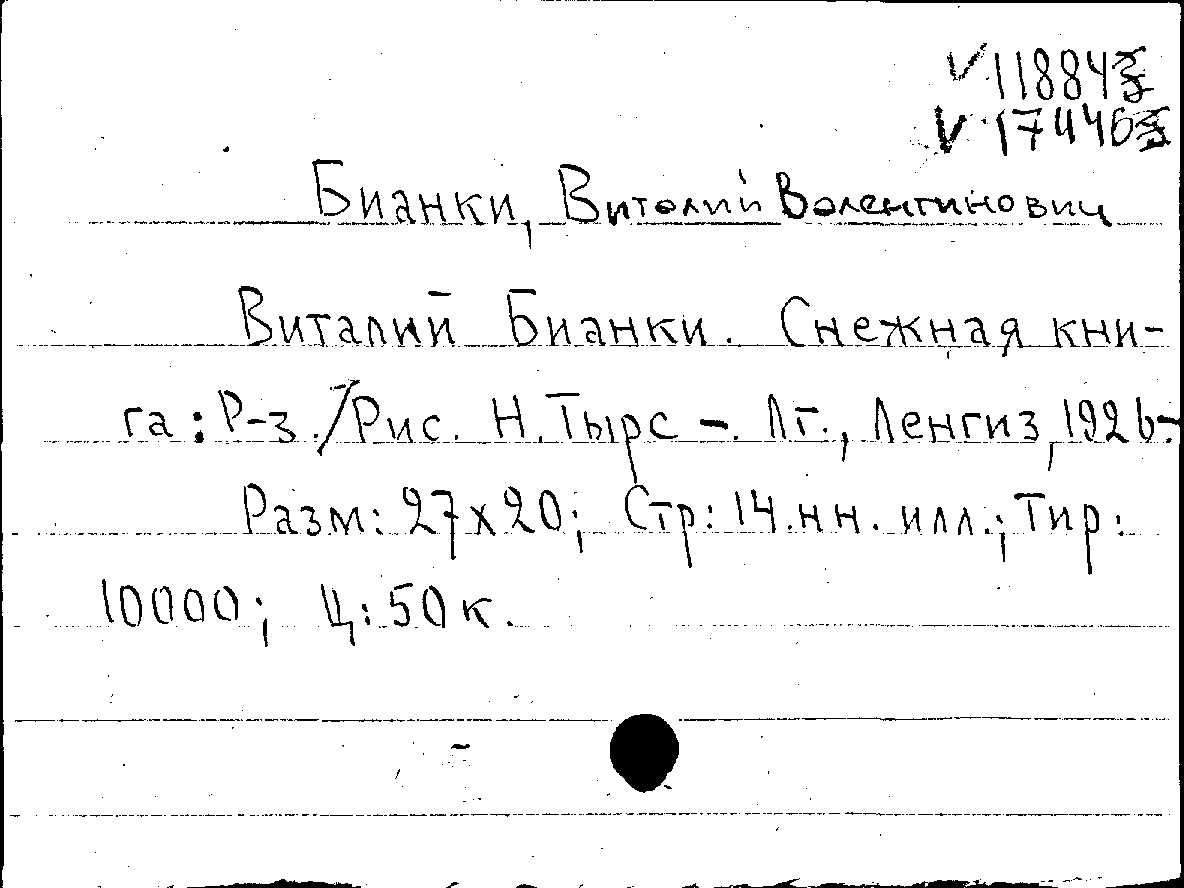 ✓ 11884
✓ 17446
Бианки, Виталий Валентинович
Виталий Бианки. Снежная кни-
га: Р-з./Рис. Н. Тырс -. Лг., Ленгиз, 1926.-
Разм: 27х20; Стр: 14.нн. илл.; Тир:
10000; Ц: 50 к.